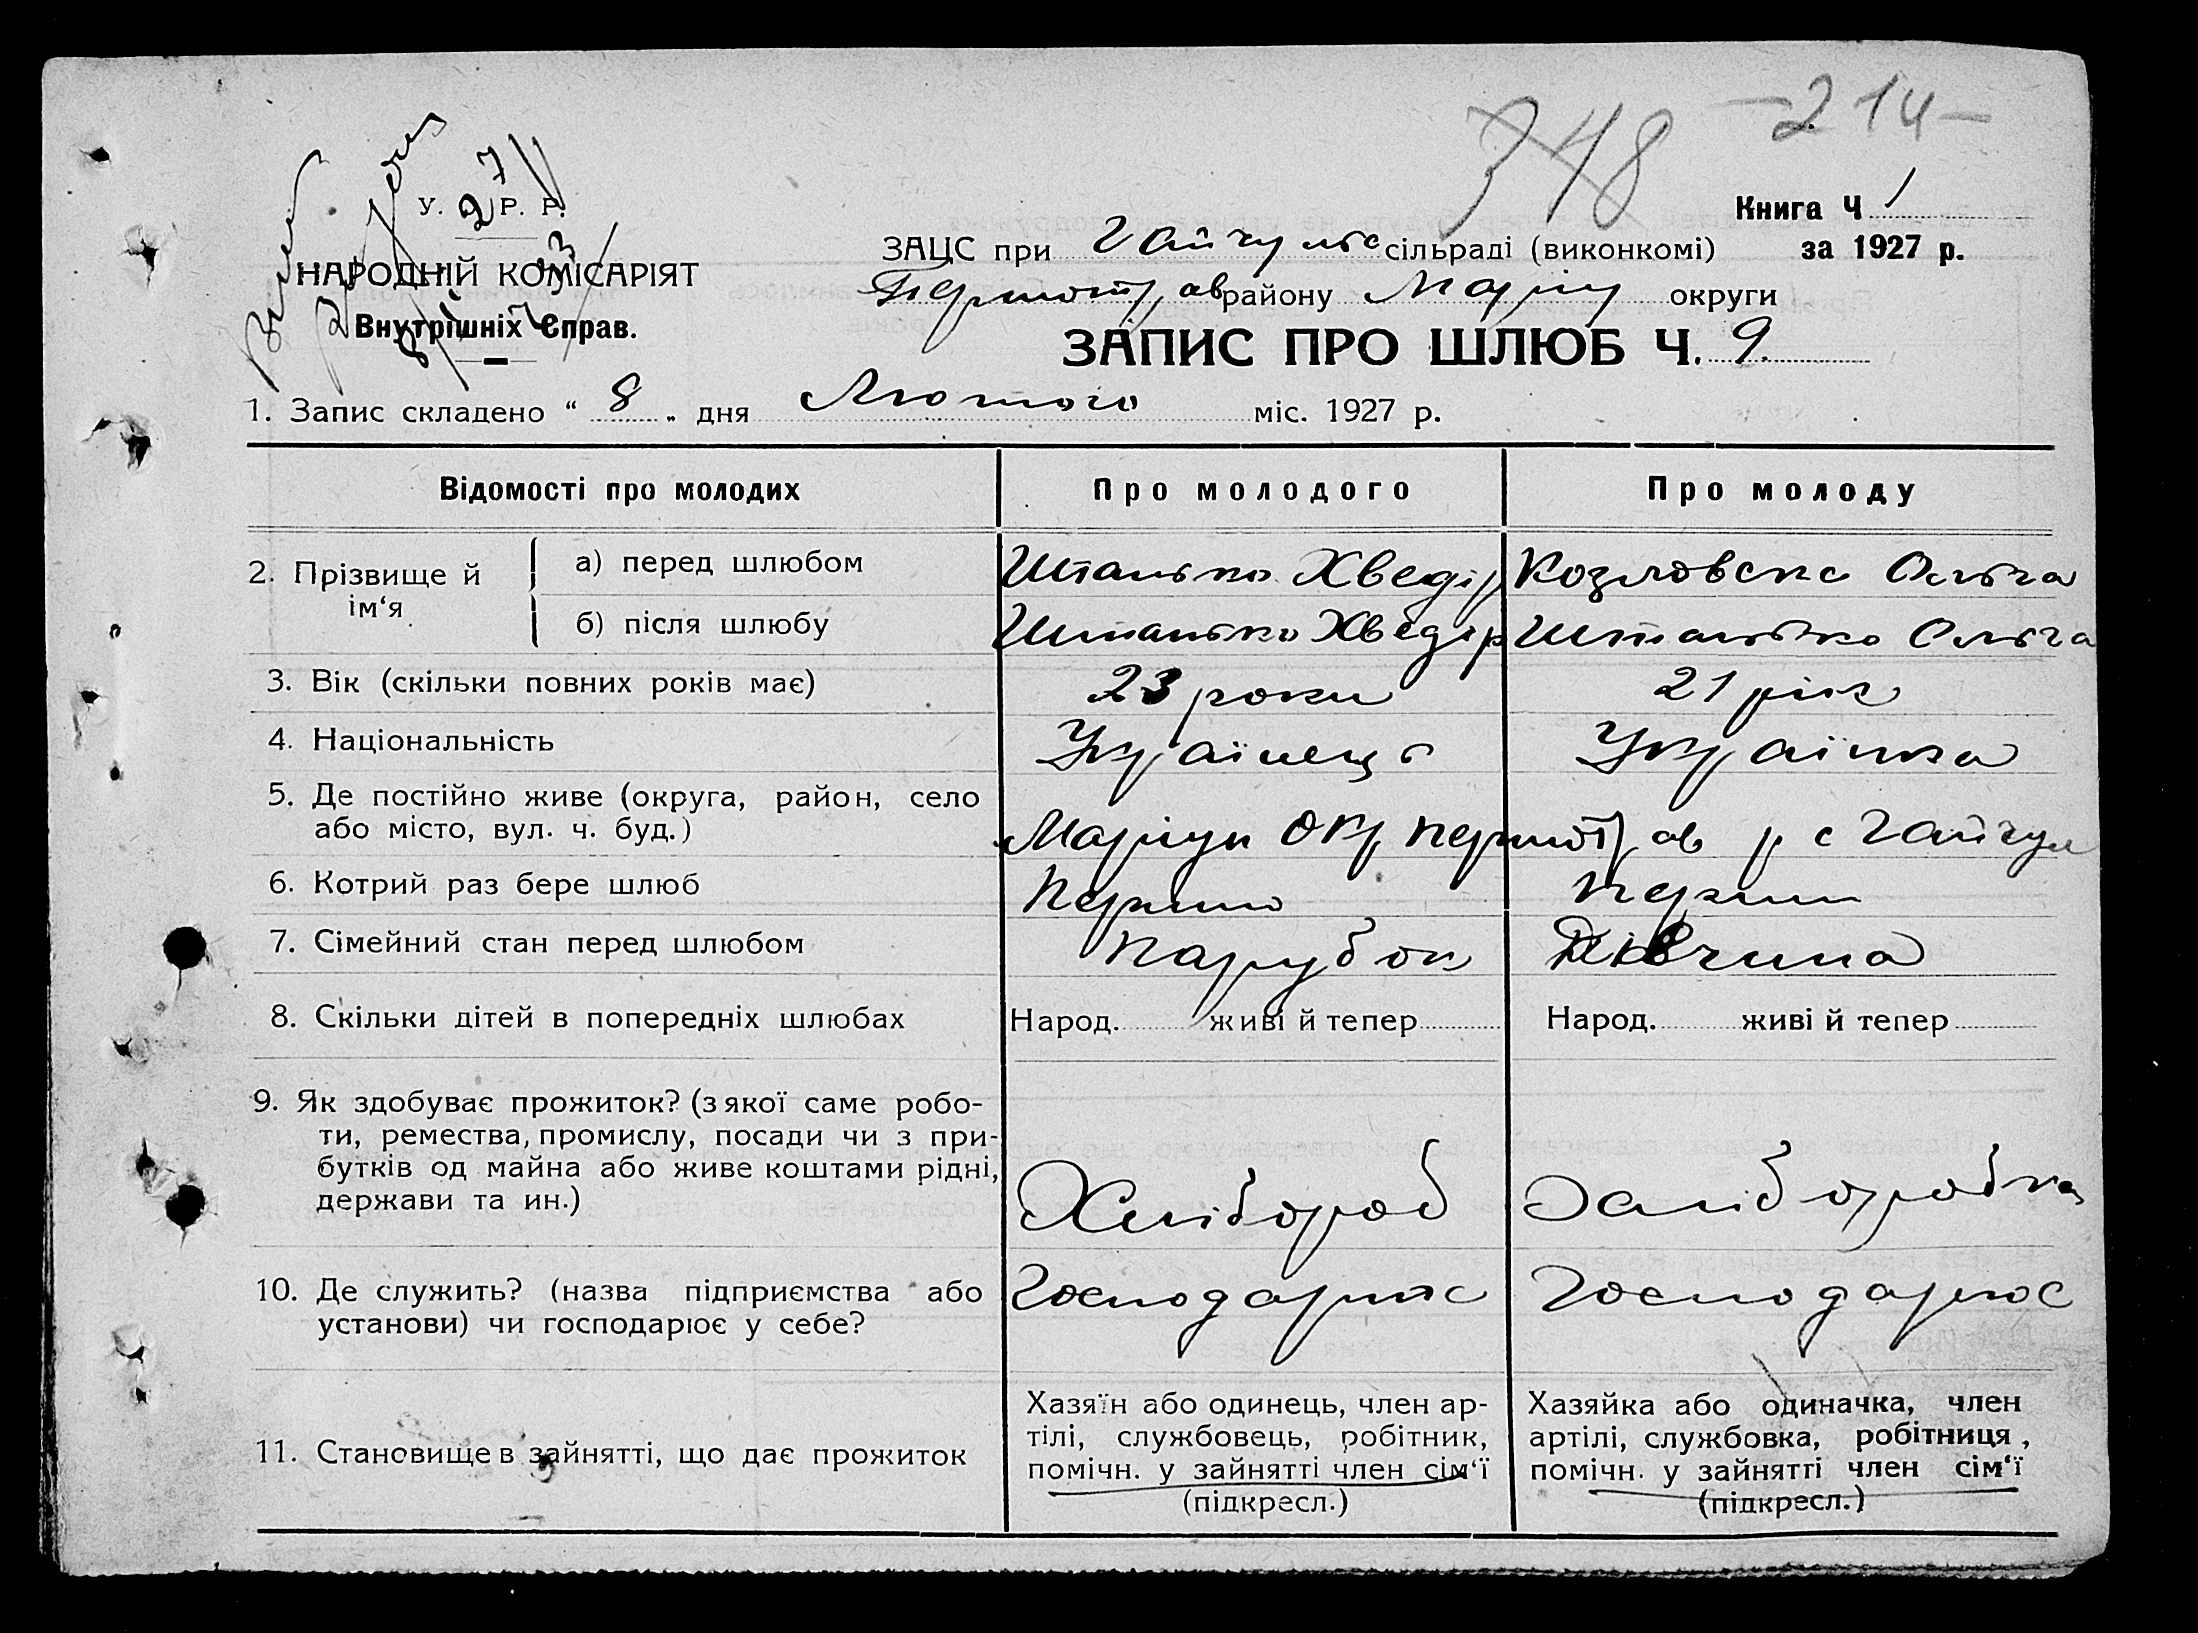 348 -214-
У. С. Р. Р.
НАРОДНІЙ КОМІСАРІЯТ
Внутрішніх Справ.
Книга Ч 1
за 1927 р.
ЗАЦС при Гайчульс сільраді (виконкомі)
району Маріу округи
ЗАПИС ПРО ШЛЮБ Ч. 9.
1. Запис складено " 8 " дня Лютого міс. 1927 р.
Відомості про молодих Про молодого Про молоду
2. Прізвище й ім‘я
а) перед шлюбом Штанько Хведір Козловска Ольга
б) після шлюбу Штанько Хведір Штанько Ольга
3. Вік (скільки повних років має) 23 роки 21 рік
4. Національність Українець Українка
5. Де постійно живе (округа, район, село
або місто, вул. ч. буд.) Маріуп окр р с Гайчул
6. Котрий раз бере шлюб
7. Сімейний стан перед шлюбом Парубок Дівчина
8. Скільки дітей в попередніх шлюбах Народ. живі й тепер Народ. живі й тепер
9. Як здобуває прожиток? (з якої саме робо-
ти, ремества, промислу, посади чи з при-
бутків од майна або живе коштами рідні,
держави та ин.) Хлібороб Хліборобка
10. Де служить? (назва підприємства або
установи) чи господарює у себе? Господарює Господарює
11. Становище в зайнятті, що дає прожиток
Хазяїн або одинець, член ар-
тілі, службовець, робітник,
помічн. у зайнятті член сім‘ї
(підкресл.)
Хазяйка або одиначка, член
артілі, службовка, робітниця,
помічн. у зайнятті член сім‘ї
(підкресл.)